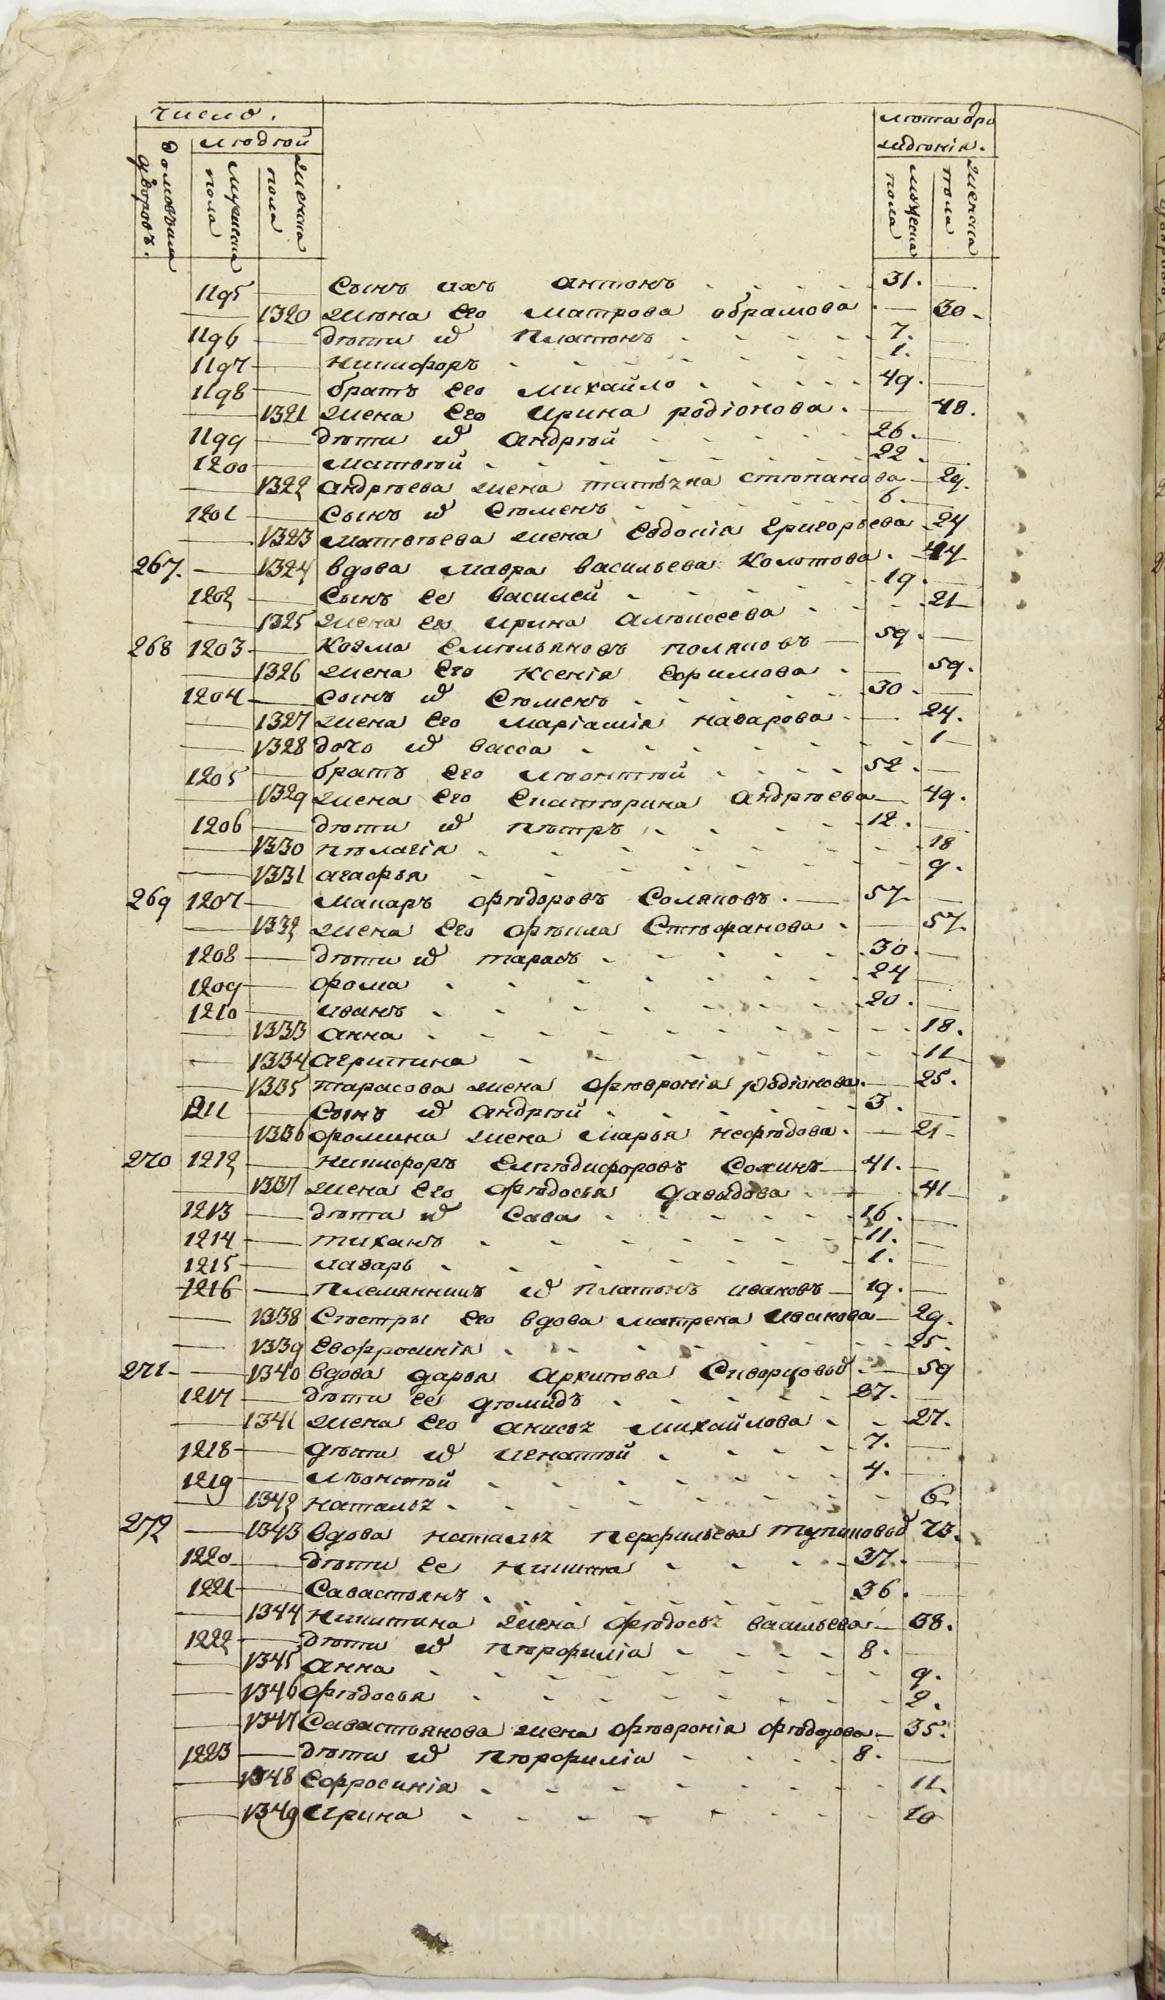 METRIKI.GASO-URAL.RU
число.
людѣй
мужеска пола
женска пола
лѣта
мужеска пола
женска пола
1195 Сынъ ихъ Антонъ 31.
1320 жена его Матрона 30.
1196 дѣти и҆ Платонъ 7.
1197 Никифоръ 1.
1198 братъ его Михайло 49.
1321 жена его Ирина родіонова. 48.
1199 дѣти Андрѣй 26.
1200 Матвѣй 22
1322 Андрѣева жена татьяна стѣпанова 29.
1201 Сынъ Сѣменъ 6.
1323 Матвѣева жена Евдокіа Григорьева 24
267. 1324 вдова Мавра васильева Колотова. 44
1202 Сынъ ее василей 19.
1325 жена ево Ирина Алѣксеева 21
268 1203 Козма Емѣльяновъ поляковъ 59.
1326 жена Его Ксеніа Ефимова 59.
1204 сынъ Сѣменъ 30.
1327 жена Его Маріамія назарова 24.
1328 дочь васса 1
1205 братъ Его Лѣонтѣй 52.
1329 жена Его Екатѣрина Андрѣева 49.
1206 дѣти Пѣтръ 12.
1330 Пѣлагіа 18
1331 агафья 9.
269 1207 Макаръ Ѳѣдоровъ Соляковъ. 57.
1332 жена Его Ѳѣкла Стѣфанова 57.
1208 дѣти тарасъ 30.
1209 фома 24
1210 иванъ 20.
1333 анна 18.
1334 агрипина 11
1335 тарасова жена Ѳѣвроніа родіонова. 25.
1211 Сынъ андрѣй 3.
1336 фомина жена Марья нефѣдова. 21
270 1212 Никифоръ 41.
1337 жена Его Ѳѣдосья давыдова 41
1213 дѣти Сава 16.
1214 тиханъ 11.
1215 лазарь 1.
1216 Племянникъ Платонъ ивановъ 19.
1338 Сѣстры Его вдова матрена иванова 29.
1339 Евфросиніа 25.
271 1340 вдова дарья Архипова Скворцовыхъ 59
1217 дѣти ее дѣмидъ 27.
1341 жена Его анисья Михайлова 27.
1218 дѣти игнатѣй 7.
1219 Лѣонтѣй 4.
1342 наталья 6.
272 1343 вдова наталья Перфильева 73.
1220 дѣти ее Никита 37.
1221 Савастьянъ 36.
1344 Никитина жена Ѳѣдосья васильева 38.
1222 дѣти Пѣрфиліа 8.
1345 анна 9.
1346 Ѳѣдосья 2.
1347 Савастьянова жена Ѳѣвроніа Ѳѣдорова 35.
1223 дѣти Пѣрфиліа 8.
1348 Ефросиніа 11.
1349 Ирина 10
METRIKI.GASO-URAL.RU